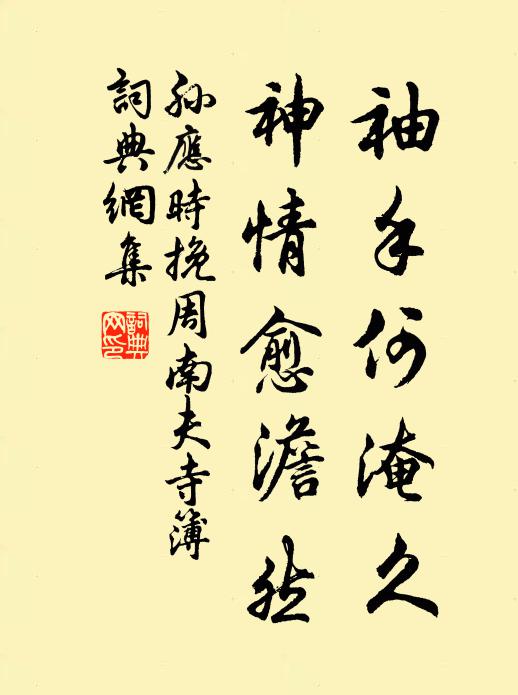 袖手何淹久
神情愈澹然
孙應時挽周南夫寺簿
詞典網集
詞典
网印